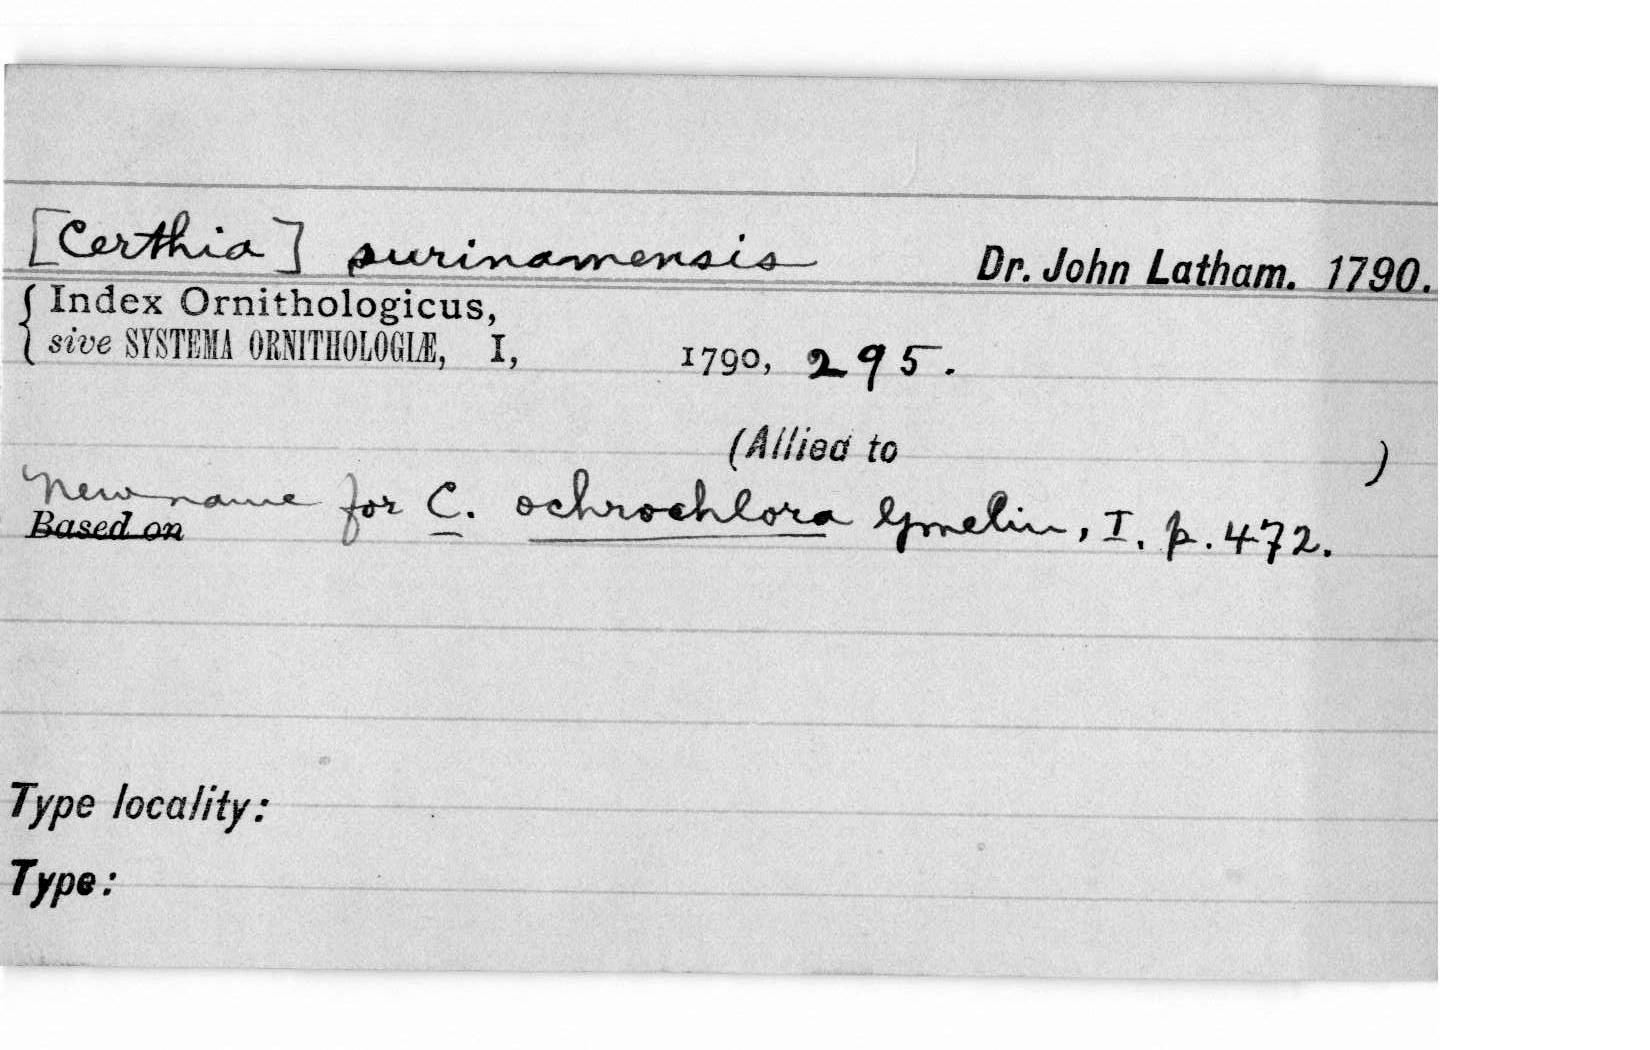 [Certhia] surinamensis Dr. John Latham. 1790.
{ Index Ornithologicus,
sive SYSTEMA ORNITHOLOGIÆ, I, 1790, 295.
(Allied to )
New name for C. ochrochlora Gmelin, I. p. 472.
Based on
Type locality:
Type: